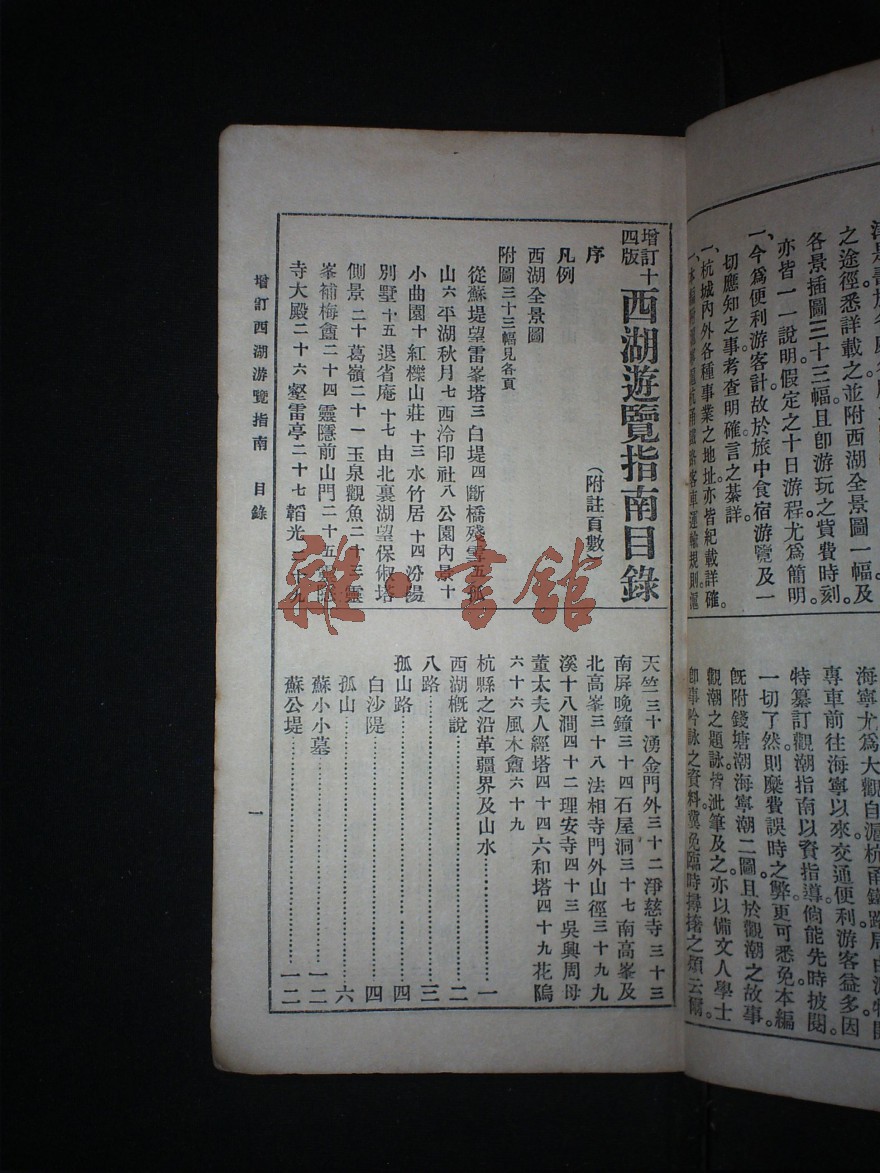 之途徑悉詳載之並附西湖全景圖一幅及
各景插圖三十三幅且卽游玩之貲費時刻
亦皆一一說明假定之十日游程尤爲簡明
一、今爲便利游客計故於旅中食宿游覽及一
切應知之事考查明確言之綦詳
一、杭城內外各種事業之地址亦皆紀載詳確
海寧尤爲大觀自滬杭甬鐵路
專車前往海寧以來交通便利游客益多因
特纂訂觀潮指南以資指導倘能先時披閱
一切了然則糜費誤時之弊更可悉免本編
旣附錢塘潮海寧潮二圖且於觀潮之故事
觀潮之題詠皆泚筆及之亦以備文人學士
卽事吟詠之資料冀免臨時撏撦之煩云爾
增訂十四版西湖遊覽指南目錄
(附註頁數)
序
凡例
西湖全景圖
附圖三十三幅見各頁
從蘇堤望雷峯塔三 白堤四 斷橋殘雪五 孤
山六 平湖秋月七 西泠印社八 公園內景十
小曲園十 紅櫟山莊十三 水竹居十四 汾陽
別墅十五 退省庵十七 由北裏湖望保俶塔
側景二十 葛嶺二十一 玉泉觀魚二十三 靈
峯補梅盦二十四 靈隱前山門二十五
寺大殿二十六 壑雷亭二十七 韜光二十九
天竺三十 湧金門外三十二 淨慈寺三十三
南屏晚鐘三十四 石屋洞三十七 南高峯及
北高峯三十八 法相寺門外山徑三十九 九
溪十八澗四十二 理安寺四十三 吳興周母
董太夫人經塔四十四 六和塔四十九 花隝
六十六 風木盦六十九
杭縣之沿革疆界及山水……一
西湖概說……二
八路……三
孤山路……四
白沙隄……四
孤山……六
蘇小小墓……一二
蘇公堤……一二
增訂西湖游覽指南 目錄
一
雜·書館